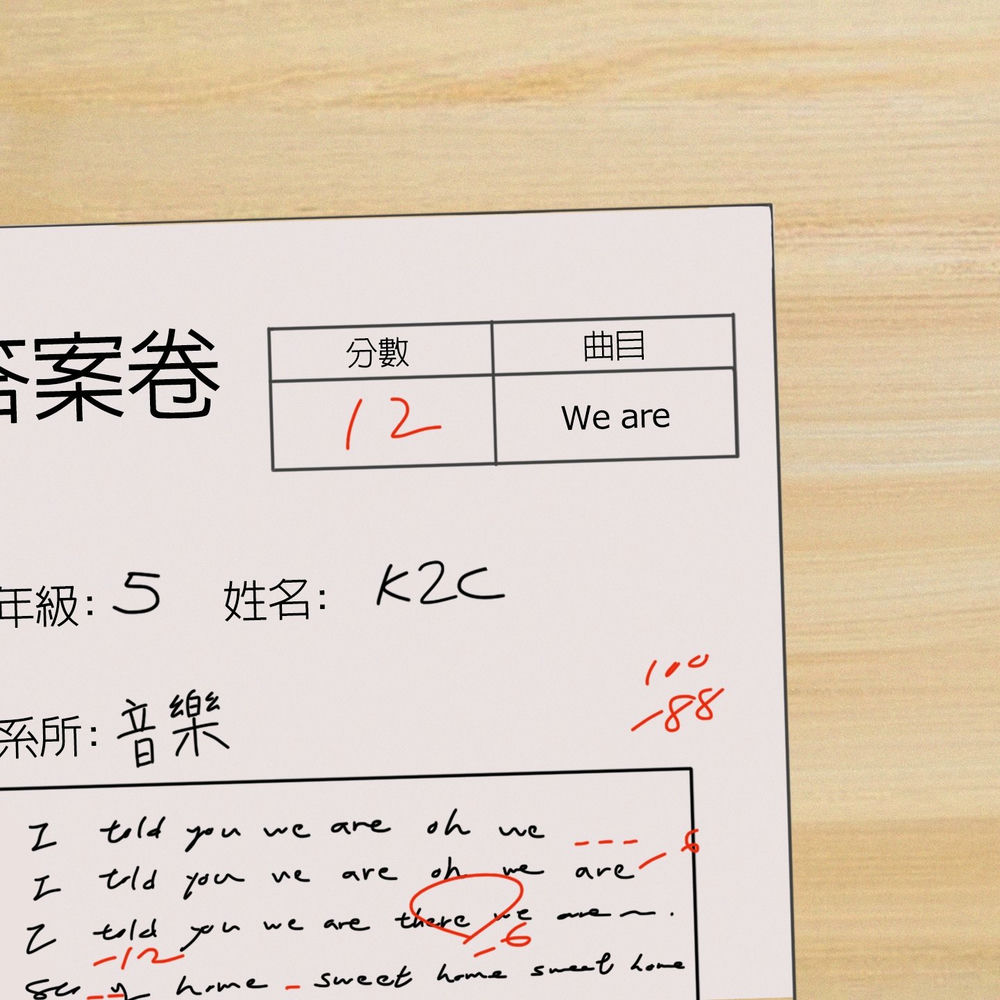 答案卷
分數 曲目
12 We are
年級: 5 姓名: K2C
100
-88
系所: 音樂
I told you we are oh we ---
I told you we are oh we are -6
I told you we are there we are~.
-12 -6
home - sweet home sweet home